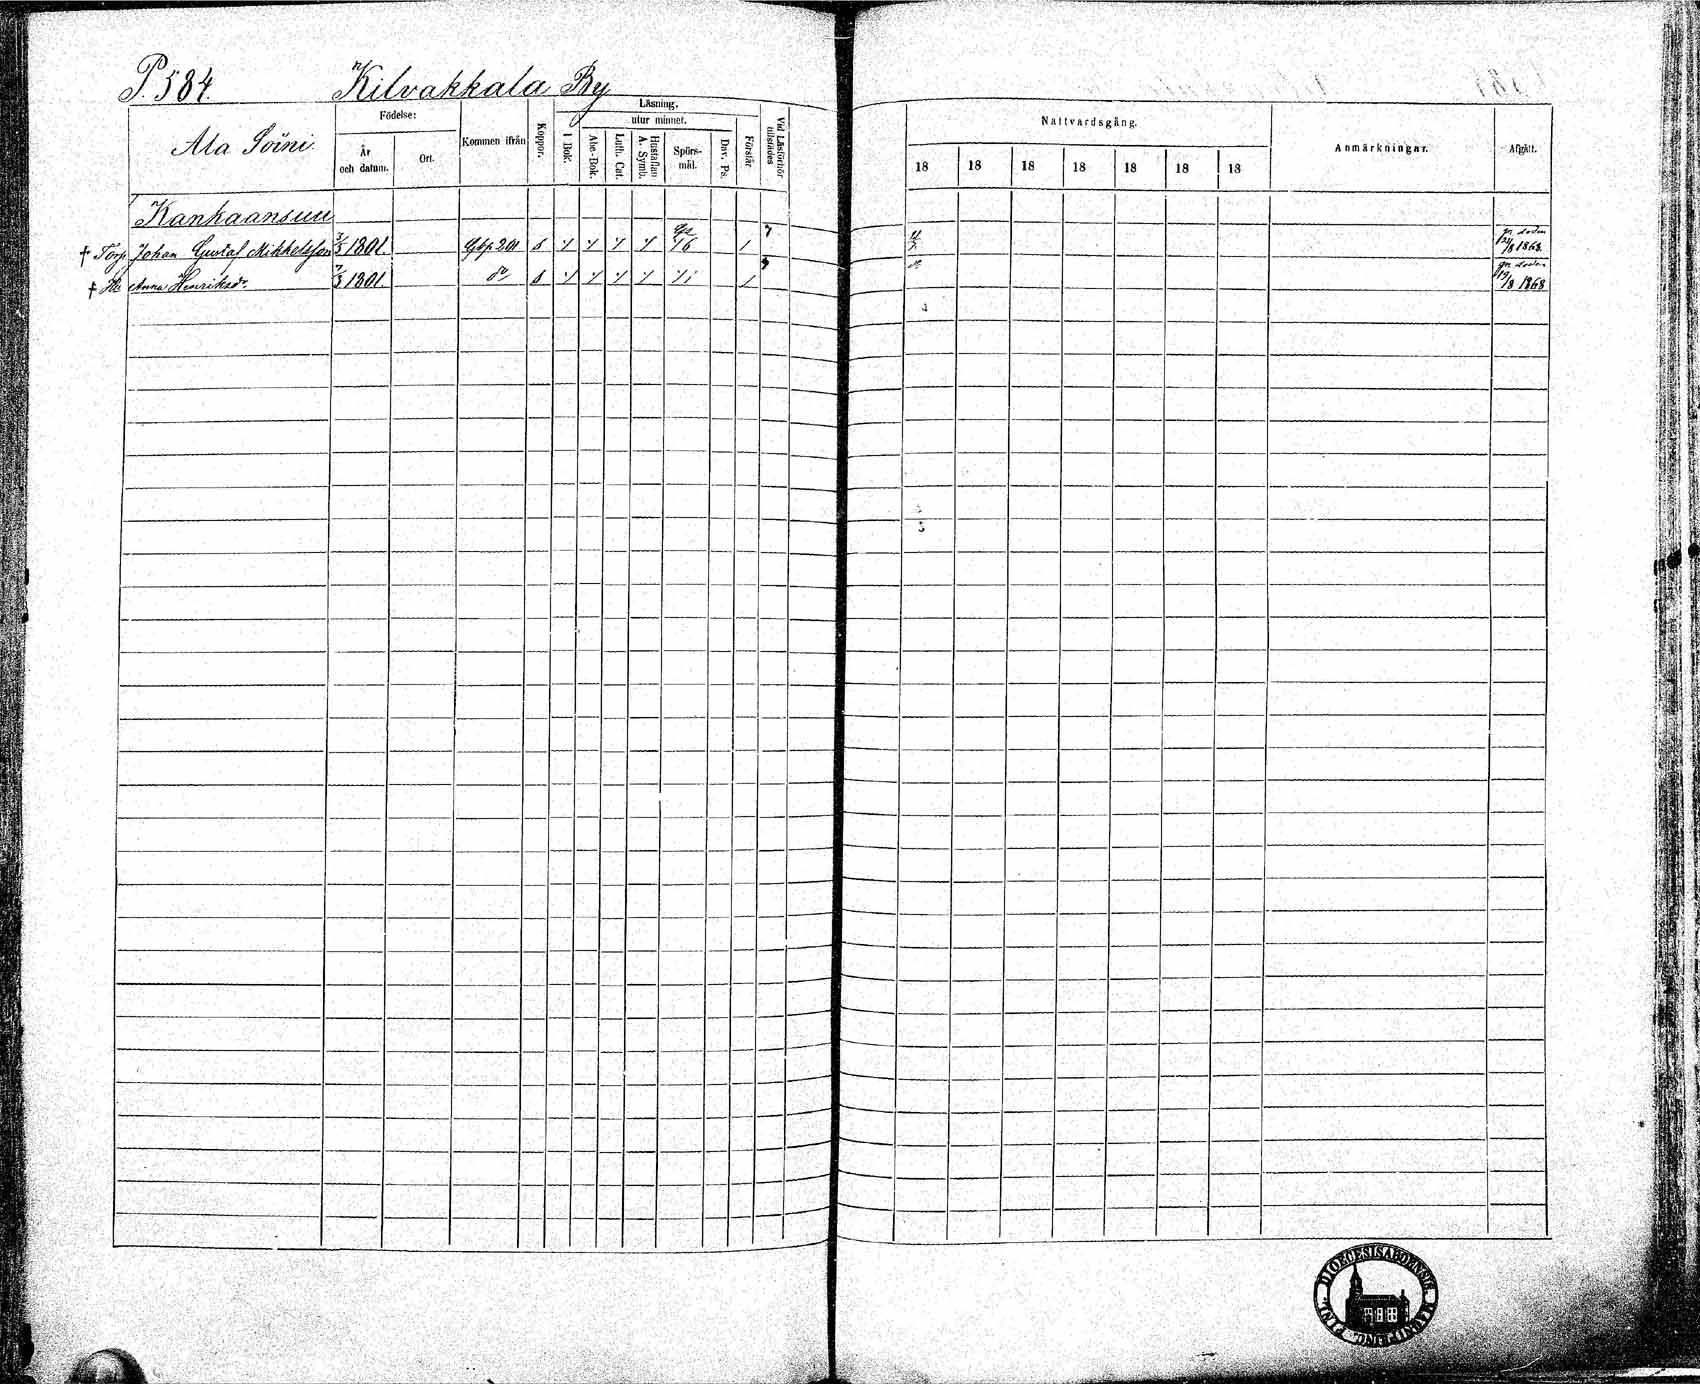 P. 584. Kilvakkala By
Ala Soini.
Födelse:
År och datum.
Ort.
Kommen ifrån
Koppor.
Läsning.
I Bok.
utur minnet.
Abc-Bok.
Luth. Cat.
Hustaflan A. Symb.
Spörs-mål.
Dav. Ps.
Förstår
Vid Läsförhör tillstädes
Nattvardsgång.
18 18 18 18 18 18 18
Anmärkningar.
Afgått.
Kankaansuu
† Torp Johan Gustaf Mikkelsson 1801. 201 1868
† Anna Henriksdr 1801. do 19/8 1868
DIOECESIS ABOENSIS
FINL.